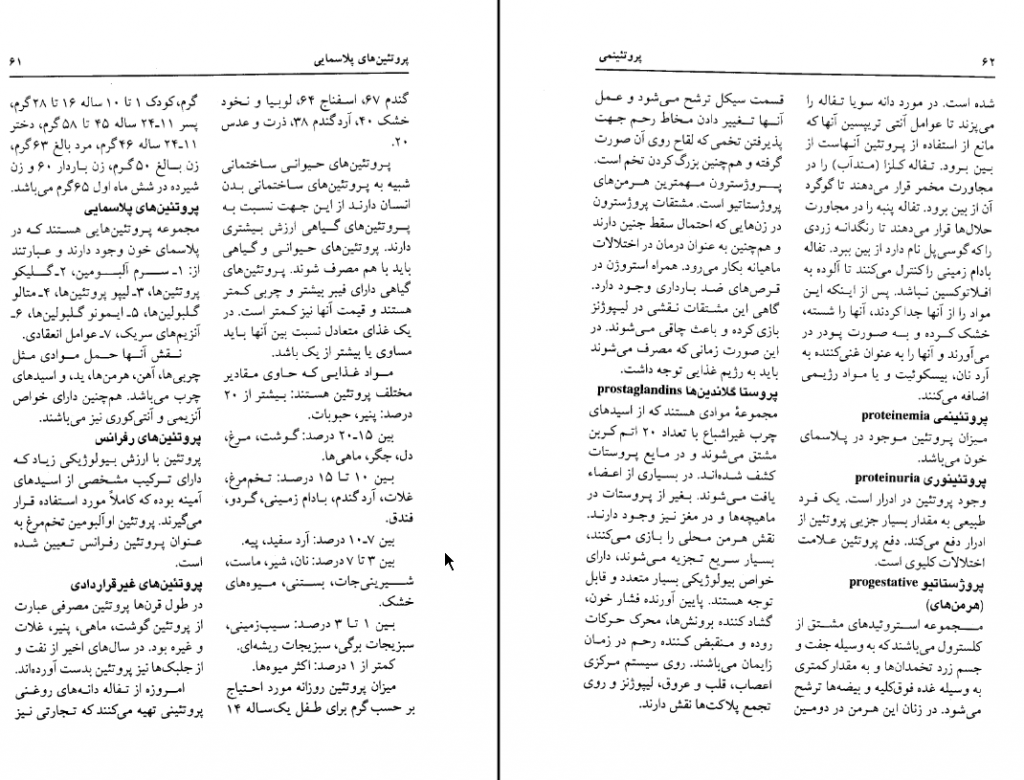 پروتئین‌های پلاسمایی
۶۱
گندم ۶۷، اسفناج ۶۴، لوبیا و نخود
خشک ۴۰، آردگندم ۳۸، ذرت و عدس
۲۰.
پروتئین‌های حیوانی ساختمانی
شبیه به پروتئین‌های ساختمانی بدن
انسان دارند از این جهت نسبت به
پروتئین‌های گیاهی ارزش بیشتری
دارند. پروتئین‌های حیوانی و گیاهی
باید با هم مصرف شوند. پروتئین‌های
گیاهی دارای فیبر بیشتر و چربی کمتر
هستند و قیمت آنها نیز کمتر است. در
یک غذای متعادل نسبت بین آنها باید
مساوی یا بیشتر از یک باشد.
مواد غذایی که حاوی مقادیر
مختلف پروتئین هستند: بیشتر از ۲۰
درصد: پنیر، حبوبات.
بین ۱۵-۲۰ درصد: گوشت، مرغ،
دل، جگر، ماهی‌ها.
بین ۱۰ تا ۱۵ درصد: تخم‌مرغ،
غلات، آردگندم، بادام زمینی، گردو،
فندق.
بین ۷-۱۰ درصد: آرد سفید، پیه.
بین ۳ تا ۷ درصد: نان، شیر، ماست،
شیرینی‌جات، بستنی، میوه‌های
خشک.
بین ۱ تا ۳ درصد: سیب‌زمینی،
سبزیجات برگی، سبزیجات ریشه‌ای.
کمتر از ۱ درصد: اکثر میوه‌ها.
میزان پروتئین روزانه مورد احتیاج
بر حسب گرم برای طفل یک‌ساله ۱۴
گرم، کودک ۱ تا ۱۰ ساله ۱۶ تا ۲۸گرم،
پسر ۱۱-۲۴ ساله ۴۵ تا ۵۸گرم، دختر
۱۱-۲۴ ساله ۴۶گرم، مرد بالغ ۶۳گرم،
زن بالغ ۵۰گرم، زن باردار ۶۰ و زن
شیرده در شش ماه اول ۶۵گرم می‌باشد.
پروتئین‌های پلاسمایی
مجموعه پروتئین‌هایی هستند که در
پلاسمای خون وجود دارند و عبارتند
از: ۱ـ سرم آلبومین، ۲ـ گلیکو
پروتئین‌ها، ۳ـ لیپو پروتئین‌ها، ۴ـ متالو
گلبولین‌ها، ۵ـ ایمونو گلبولین‌ها، ۶ـ
آنزیم‌های سریک، ۷ـ عوامل انعقادی.
نقش آنها حمل موادی مثل
چربی‌ها، آهن، هرمن‌ها، ید، و اسیدهای
چرب می‌باشد. هم‌چنین دارای خواص
آنزیمی و آنتی‌کوری نیز می‌باشند.
پروتئین‌های رفرانس
پروتئین با ارزش بیولوژیکی زیاد که
دارای ترکیب مشخصی از اسیدهای
آمینه بوده که کاملاً مورد استفاده قرار
می‌گیرند. پروتئین اوآلبومین تخم‌مرغ به
عنوان پروتئین رفرانس تعیین شده
است.
پروتئین‌های غیرقراردادی
در طول قرن‌ها پروتئین مصرفی عبارت
از پروتئین گوشت، ماهی، پنیر، غلات
و غیره بود. در سال‌های اخیر از نفت و
از جلبک‌ها نیز پروتئین بدست آورده‌اند.
امروزه از تفاله دانه‌های روغنی
پروتئینی تهیه می‌کنند که تجارتی نیز
۶۲
پروتئینمی
شده است. در مورد دانه سویا تفاله را
می‌پزند تا عوامل آنتی تریپسین آنها که
مانع از استفاده از پروتئین آنهاست از
بین برود. تفاله کلزا (منداب) را در
مجاورت مخمر قرار می‌دهند تا گوگرد
آن از بین برود. تفاله پنبه را در مجاورت
حلال‌ها قرار می‌دهند تا رنگدانه زردی
را که گوسی‌پل نام دارد از بین ببرد. تفاله
بادام زمینی را کنترل می‌کنند تا آلوده به
افلاتوکسین نباشد. پس از اینکه این
مواد را از آنها جدا کردند، آنها را شسته،
خشک کرده و به صورت پودر در
می‌آورند و آنها را به عنوان غنی‌کننده به
آرد نان، بیسکوئیت و یا مواد رژیمی
اضافه می‌کنند.
پروتئینمی proteinemia
میزان پروتئین موجود در پلاسمای
خون می‌باشد.
پروتئینوری proteinuria
وجود پروتئین در ادرار است. یک فرد
طبیعی به مقدار بسیار جزیی پروتئین از
ادرار دفع می‌کند. دفع پروتئین علامت
اختلالات کلیوی است.
پروژستاتیو progestative
(هرمن‌های)
مجموعه استروئیدهای مشتق از
کلسترول می‌باشند که به وسیله جفت و
جسم زرد تخمدان‌ها و به مقدار کمتری
به وسیله غده فوق‌کلیه و بیضه‌ها ترشح
می‌شود. در زنان این هرمن در دومین
قسمت سیکل ترشح می‌شود و عمل
آنها تغییر دادن مخاط رحم جهت
پذیرفتن تخمی که لقاح روی آن صورت
گرفته و هم‌چنین بزرگ کردن تخم است.
پروژسترون مهمترین هرمن‌های
پروژستاتیو است. مشتقات پروژسترون
در زن‌هایی که احتمال سقط جنین دارند
و هم‌چنین به عنوان درمان در اختلالات
ماهیانه بکار می‌رود. همراه استروژن در
قرص‌های ضد بارداری وجود دارد.
گاهی این مشتقات نقشی در لیپوژنز
بازی کرده و باعث چاقی می‌شوند. در
این صورت زمانی که مصرف می‌شوند
باید به رژیم غذایی توجه داشت.
پروستا گلاندین‌ها prostaglandins
مجموعهٔ موادی هستند که از اسیدهای
چرب غیراشباع با تعداد ۲۰ اتم کربن
مشتق می‌شوند و در مایع پروستات
کشف شده‌اند. در بسیاری از اعضاء
یافت می‌شوند. بغیر از پروستات در
ماهیچه‌ها و در مغز نیز وجود دارند.
نقش هرمن محلی را بازی می‌کنند،
بسیار سریع تجزیه می‌شوند، دارای
خواص بیولوژیکی بسیار متعدد و قابل
توجه هستند. پایین آورنده فشار خون،
گشاد کننده برونش‌ها، محرک حرکات
روده و منقبض کننده رحم در زمان
زایمان می‌باشند. روی سیستم مرکزی
اعصاب، قلب و عروق، لیپوژنز و روی
تجمع پلاکت‌ها نقش دارند.